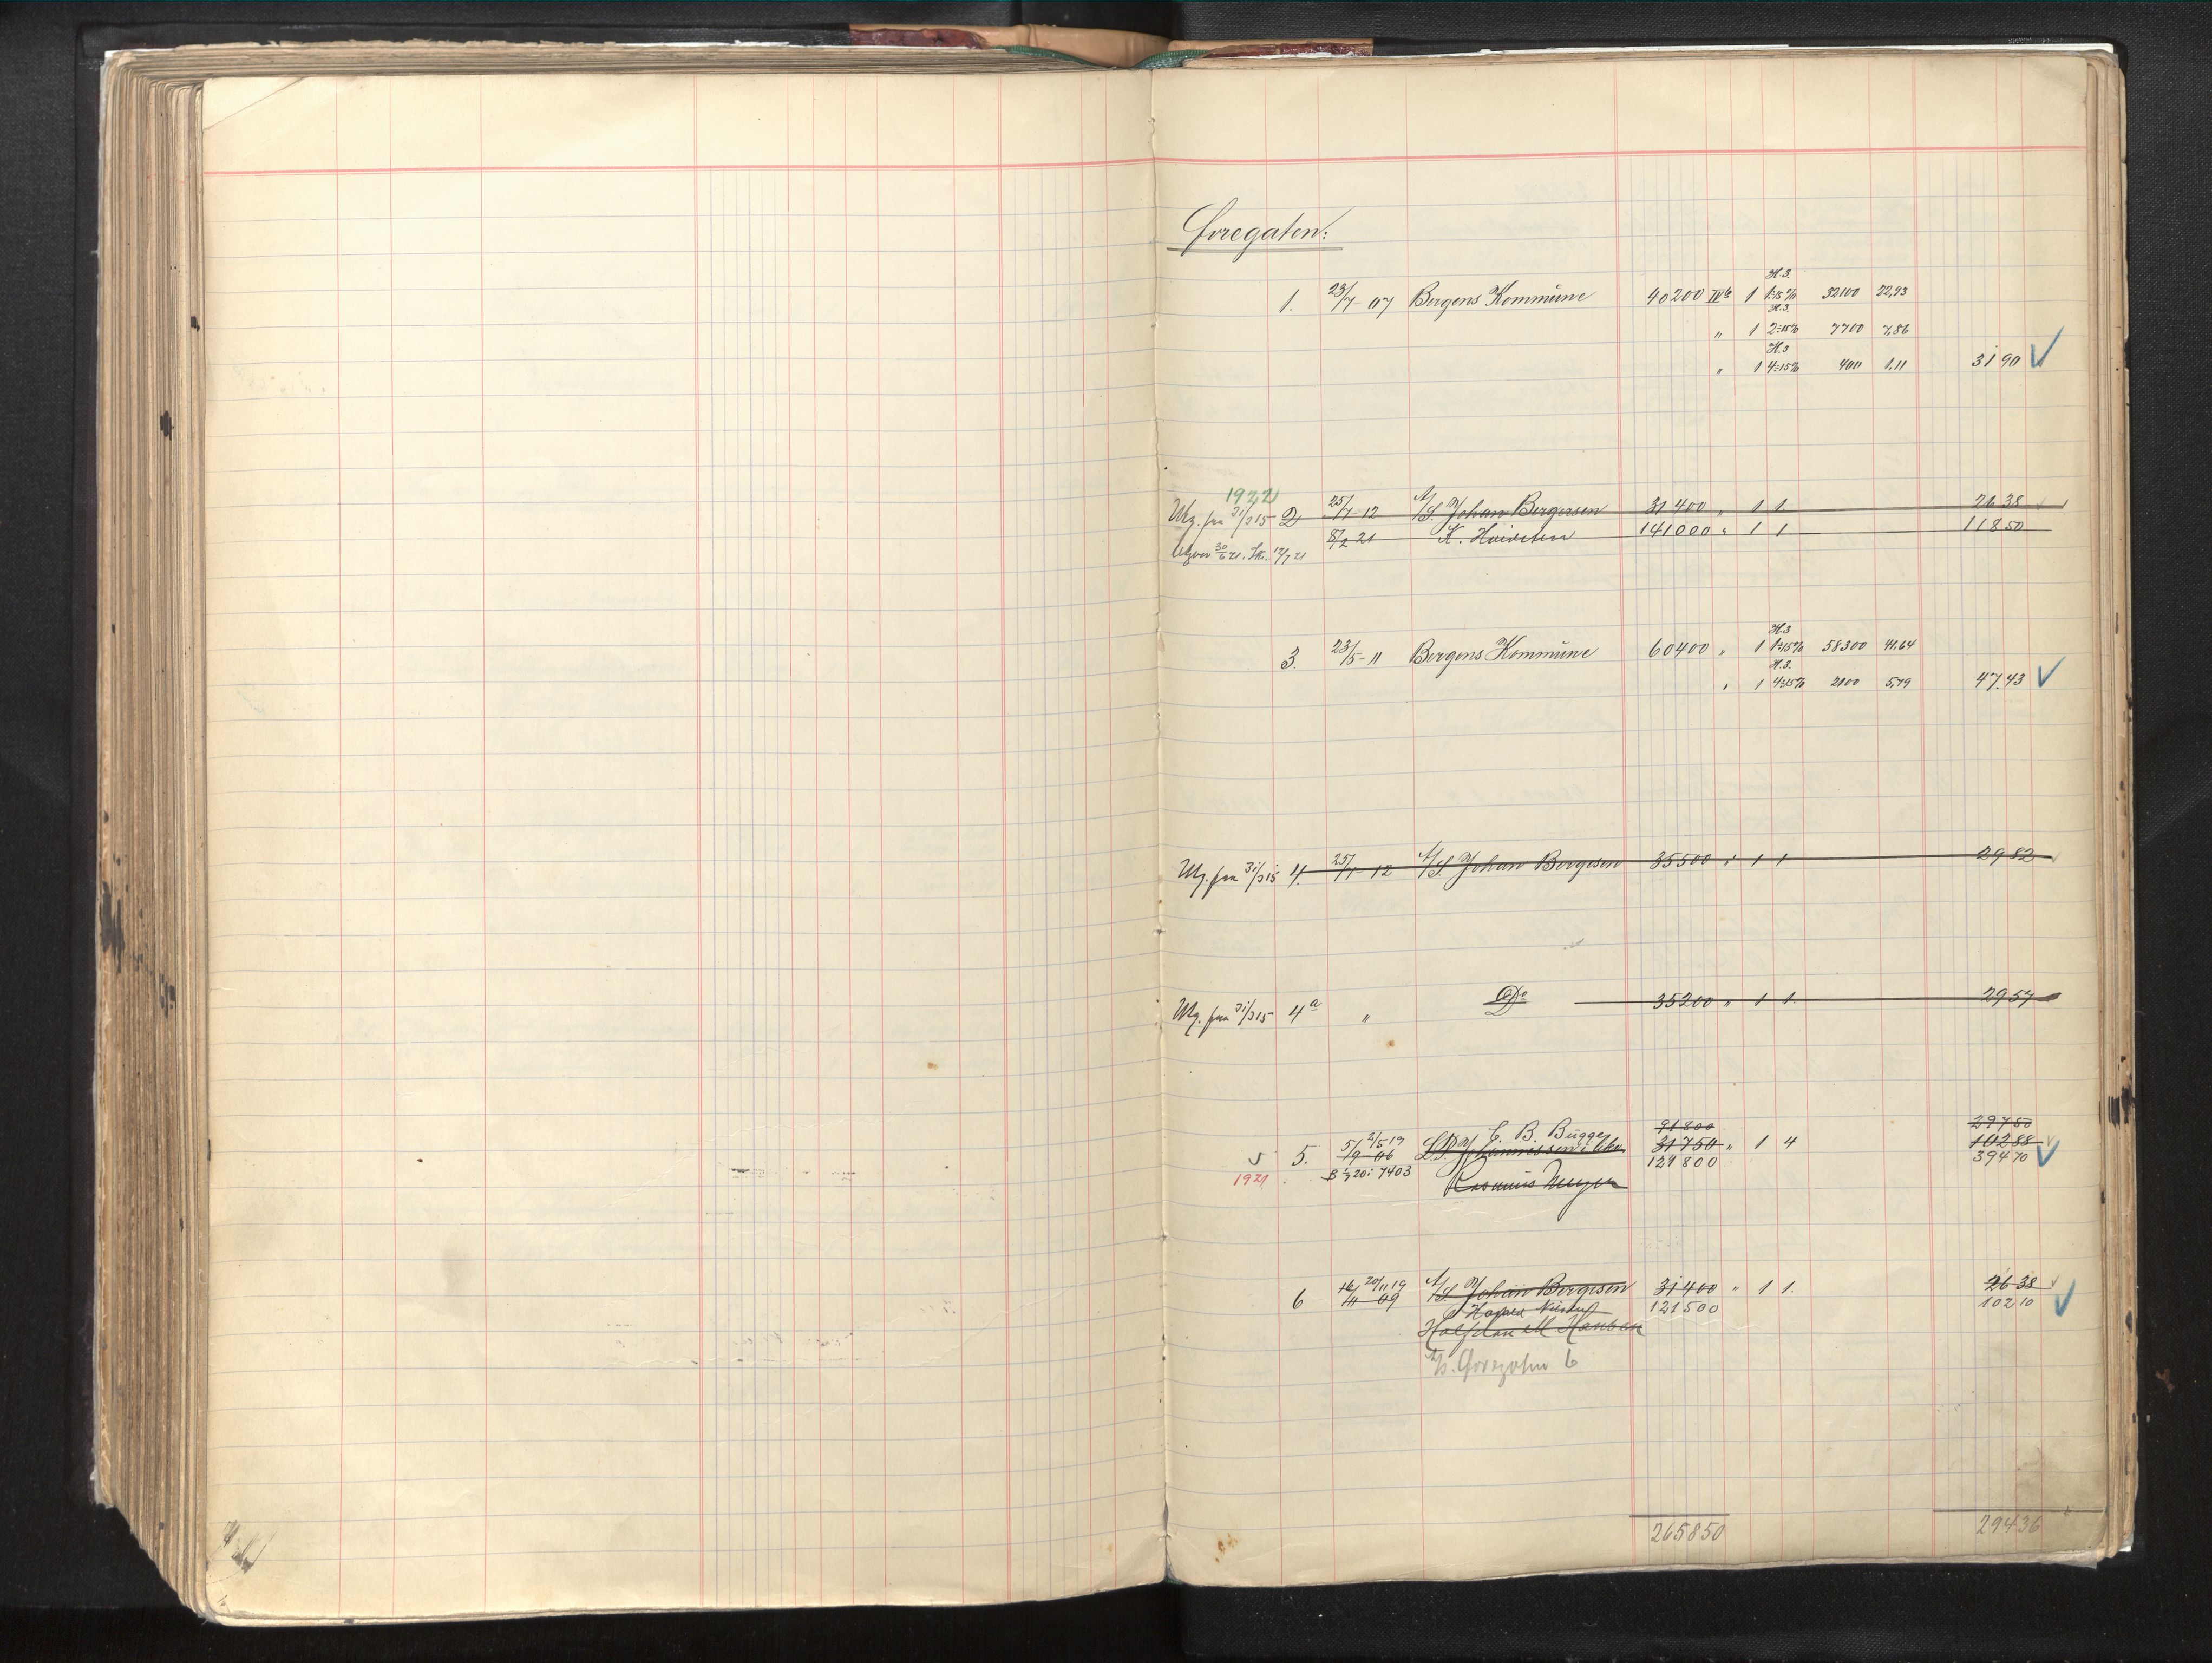 Øvregaten:
H.3.
1. 23/7-07 Bergens Kommune 40200 IVb 1 1÷15% 32100 22,93
H.3.
" 1 2÷15% 7700 7,86
H.3
" 1 4÷15% 400 1.11 31 90
1922
Utg. fra 31/3 15 2 25/1-12 A/S. Johan Bergesen 31 400 " 1 1. 26 38
8/2 21 141000 " 1 1 118 50
30/6 21. 12/7 21
H.3
3. 23/5-11 Bergens Kommune 60400 " 1 1÷15% 58300 41,64
H.3.
" 1 4÷15% 2100 5,79 47.43
Utg. fra 31/3 15 4. 25/1-12 A/S. Johan Bergesen 35500 " 1 1 29 82
Utg. fra 31/3 15 4a " Do 35200 " 1 1. 29 57
2/5 19 C. B. Bugge 91800 297 50
5. 5/9 06 31750 " 1 4 102 88
1921 7403 121800 394 70
Rasmus Meyer
6 20/11 19 16/11 09 A/S Johan Bergesen 31400 " 1 1. 26 38
121500 102 10
Halfdan M Hansen
A/S. Øvregaten 6
265850 294 36